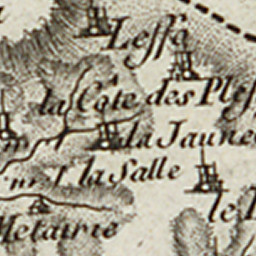 Lessa
la Côte des Ples
la Jaune
la Salle
le
Metairie